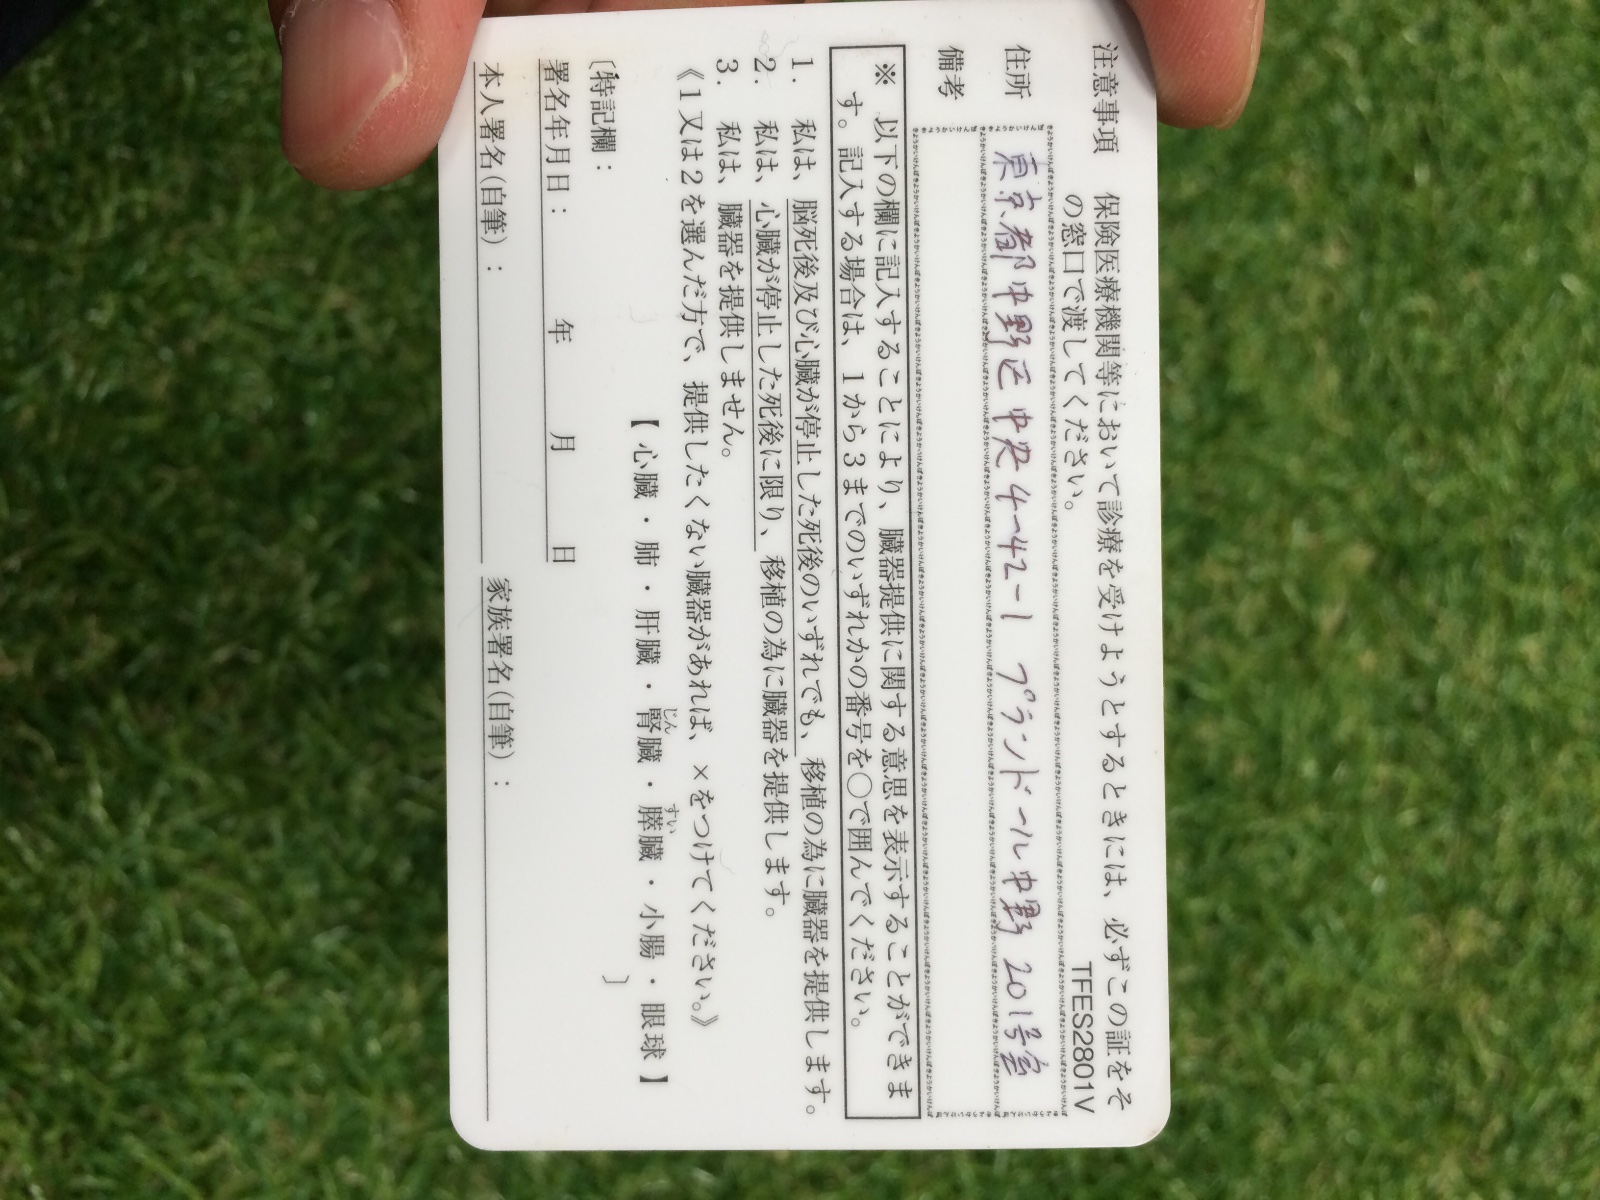 注意事項　保険医療機関等において診療を受けようとするときには、必ずこの証をそ
の窓口で渡してください。
TFES2801V
住所　東京都中野区中央4-42-1 プランドール中野 201号室
備考
※　以下の欄に記入することにより、臓器提供に関する意思を表示することができま
す。記入する場合は、1から3までのいずれかの番号を○で囲んでください。
1.　私は、脳死後及び心臓が停止した死後のいずれでも、移植の為に臓器を提供します。
2.　私は、心臓が停止した死後に限り、移植の為に臓器を提供します。
3.　私は、臓器を提供しません。
《1又は2を選んだ方で、提供したくない臓器があれば、×をつけてください。》
【心臓・肺・肝臓・腎臓・膵臓・小腸・眼球】
じん　すい
〔特記欄：　〕
署名年月日：　年　月　日
本人署名(自筆)：　家族署名(自筆)：